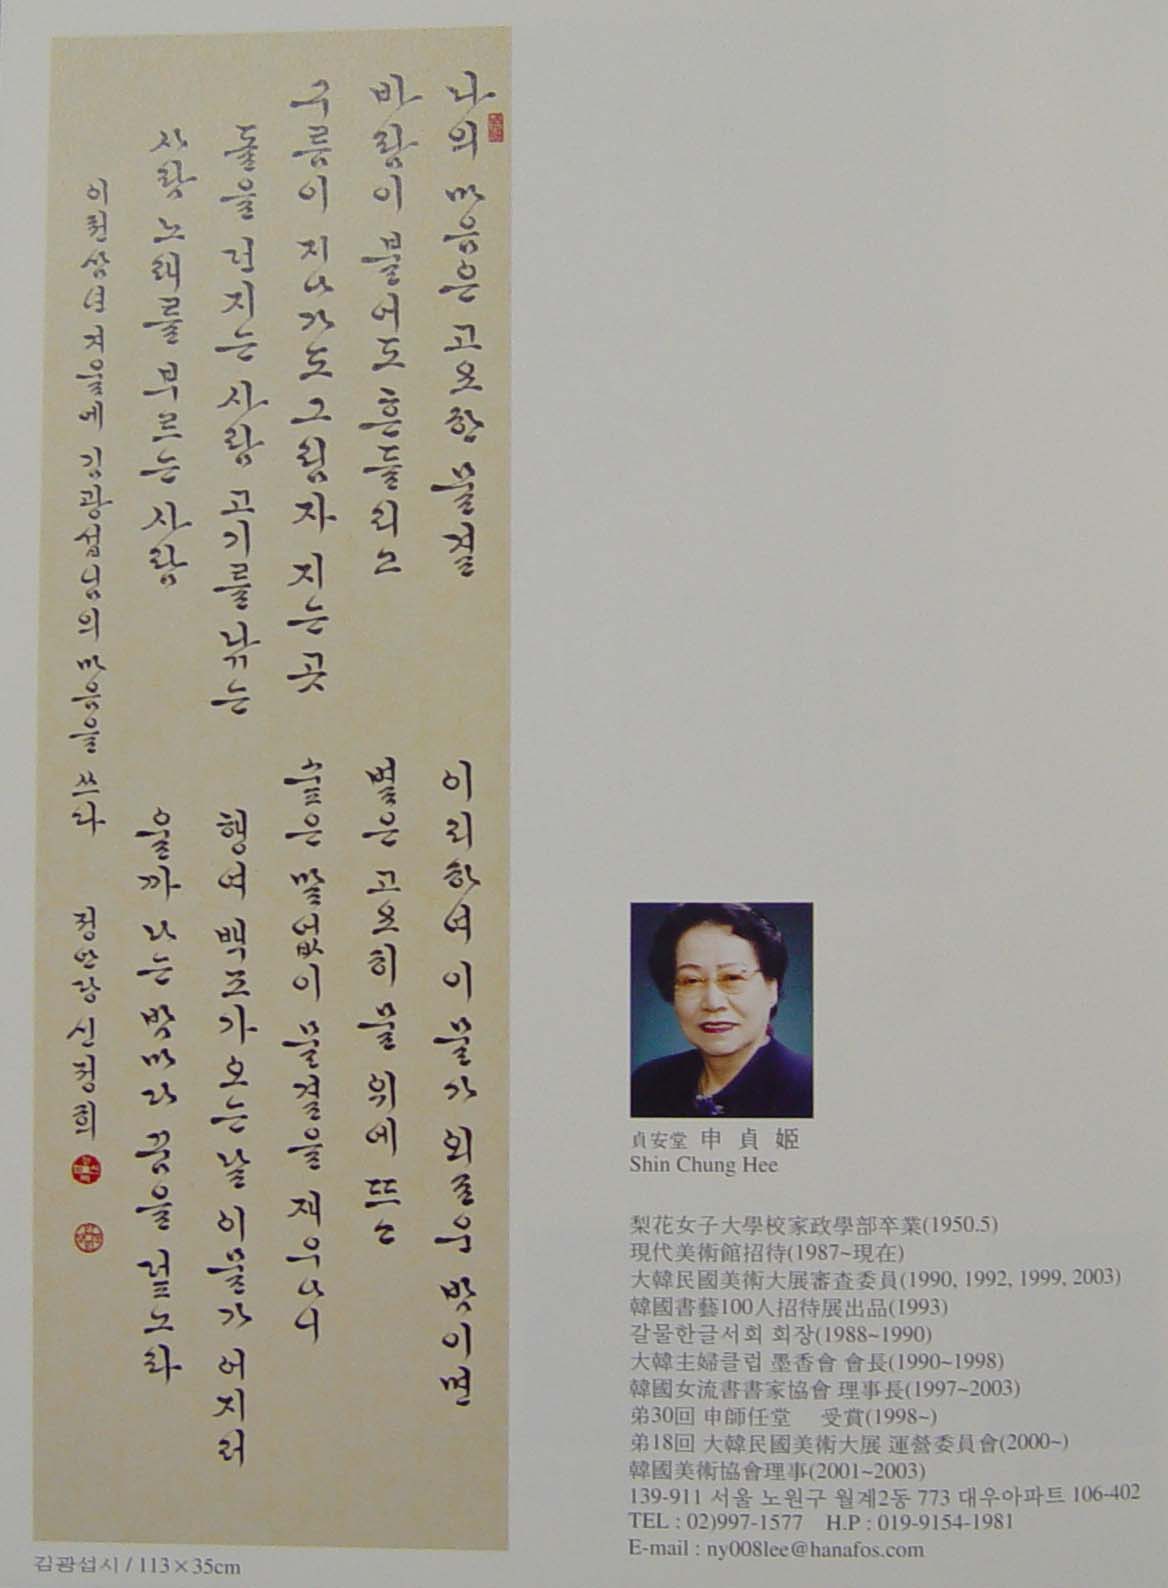 나의 마음은 고요한 물결
바람이 불어도 흔들리고
구름이 지나가도 그림자 지는 곳
돌을 던지는 사람 고기를 낚는
사람 노래를 부르는 사람
이리하여 이 물가 외로운 밤이면
별은 고요히 물 위에 뜨고
숲은 말없이 물결을 재우나니
행여 백조가 오는 날 이 물가 어지러
울까 나는 밤마다 꿈을 덮노라
이천삼년 겨울에 김광섭님의 마음을 쓰다 정안당 신정희
김광섭시 / 113×35cm
貞安堂 申 貞 姬
Shin Chung Hee
梨花女子大學校家政學部卒業(1950.5)
現代美術館招待(1987~現在)
大韓民國美術大展審査委員(1990, 1992, 1999, 2003)
韓國書藝100人招待展出品(1993)
갈물한글서회 회장(1988~1990)
大韓主婦클럽 墨香會 會長(1990~1998)
韓國女流書書家協會 理事長(1997~2003)
第30回 申師任堂 受賞(1998~)
第18回 大韓民國美術大展 運營委員會(2000~)
韓國美術協會理事(2001~2003)
139-911 서울 노원구 월계2동 773 대우아파트 106-402
TEL : 02)997-1577 H.P : 019-9154-1981
E-mail : ny008lee@hanafos.com